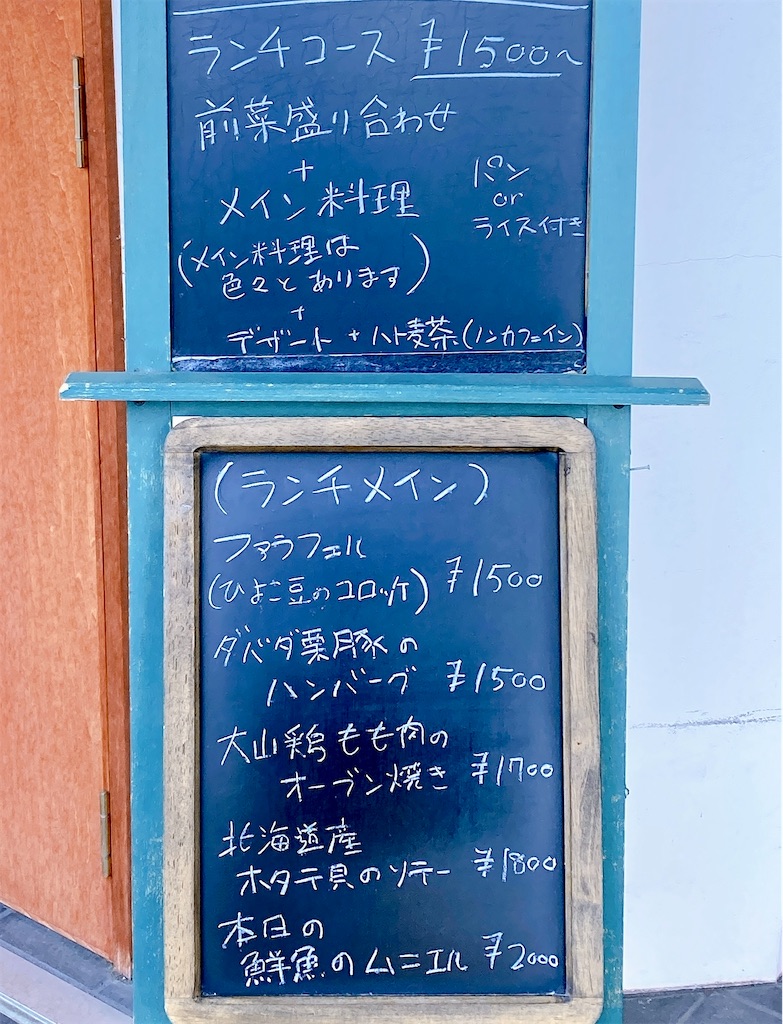 ランチコース ¥1500〜
前菜盛り合わせ
+
メイン料理
パン
or
ライス付き
(メイン料理は
色々とあります)
+
デザート + ハト麦茶(ノンカフェイン)
(ランチメイン)
ファラフェル
(ひよこ豆のコロッケ) ¥1500
ダバダ栗豚の
ハンバーグ ¥1500
大山鶏もも肉の
オーブン焼き ¥1700
北海道産
ホタテ貝のソテー ¥1800
本日の
鮮魚のムニエル ¥2000